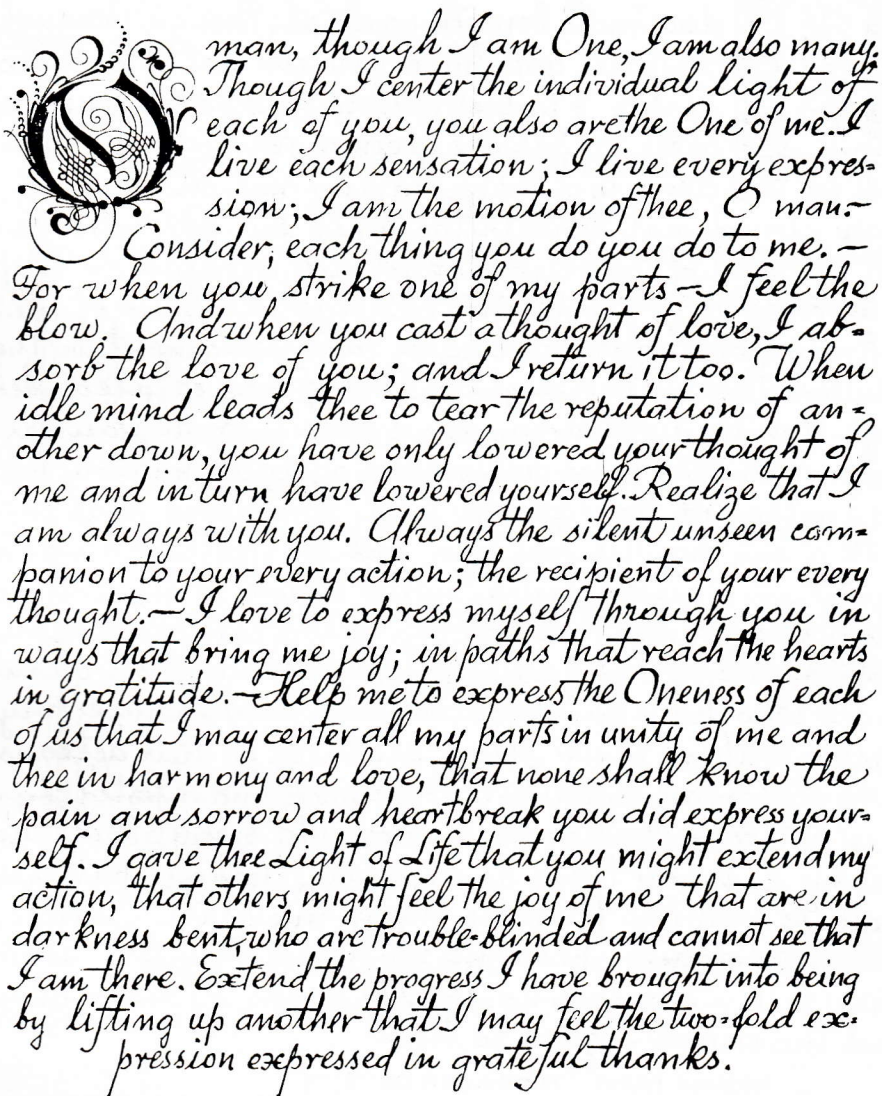 O man, though I am One, I am also many.
Though I center the individual light of
each of you, you also are the One of me. I
live each sensation; I live every expres=
sion; I am the motion of thee, O man.—
Consider, each thing you do you do to me.—
For when you strike one of my parts—I feel the
blow. And when you cast a thought of love, I ab=
sorb the love of you; and I return it too. When
idle mind leads thee to tear the reputation of an=
other down, you have only lowered your thought of
me and in turn have lowered yourself. Realize that I
am always with you. Always the silent unseen com=
panion to your every action; the recipient of your every
thought.—I love to express myself through you in
ways that bring me joy; in paths that reach the hearts
in gratitude.—Help me to express the Oneness of each
of us that I may center all my parts in unity of me and
thee in harmony and love, that none shall know the
pain and sorrow and heartbreak you did express your=
self. I gave thee Light of Life that you might extend my
action, that others might feel the joy of me that are in
darkness bent, who are trouble=blinded and cannot see that
I am there. Extend the progress I have brought into being
by lifting up another that I may feel the two=fold ex=
pression expressed in grateful thanks.